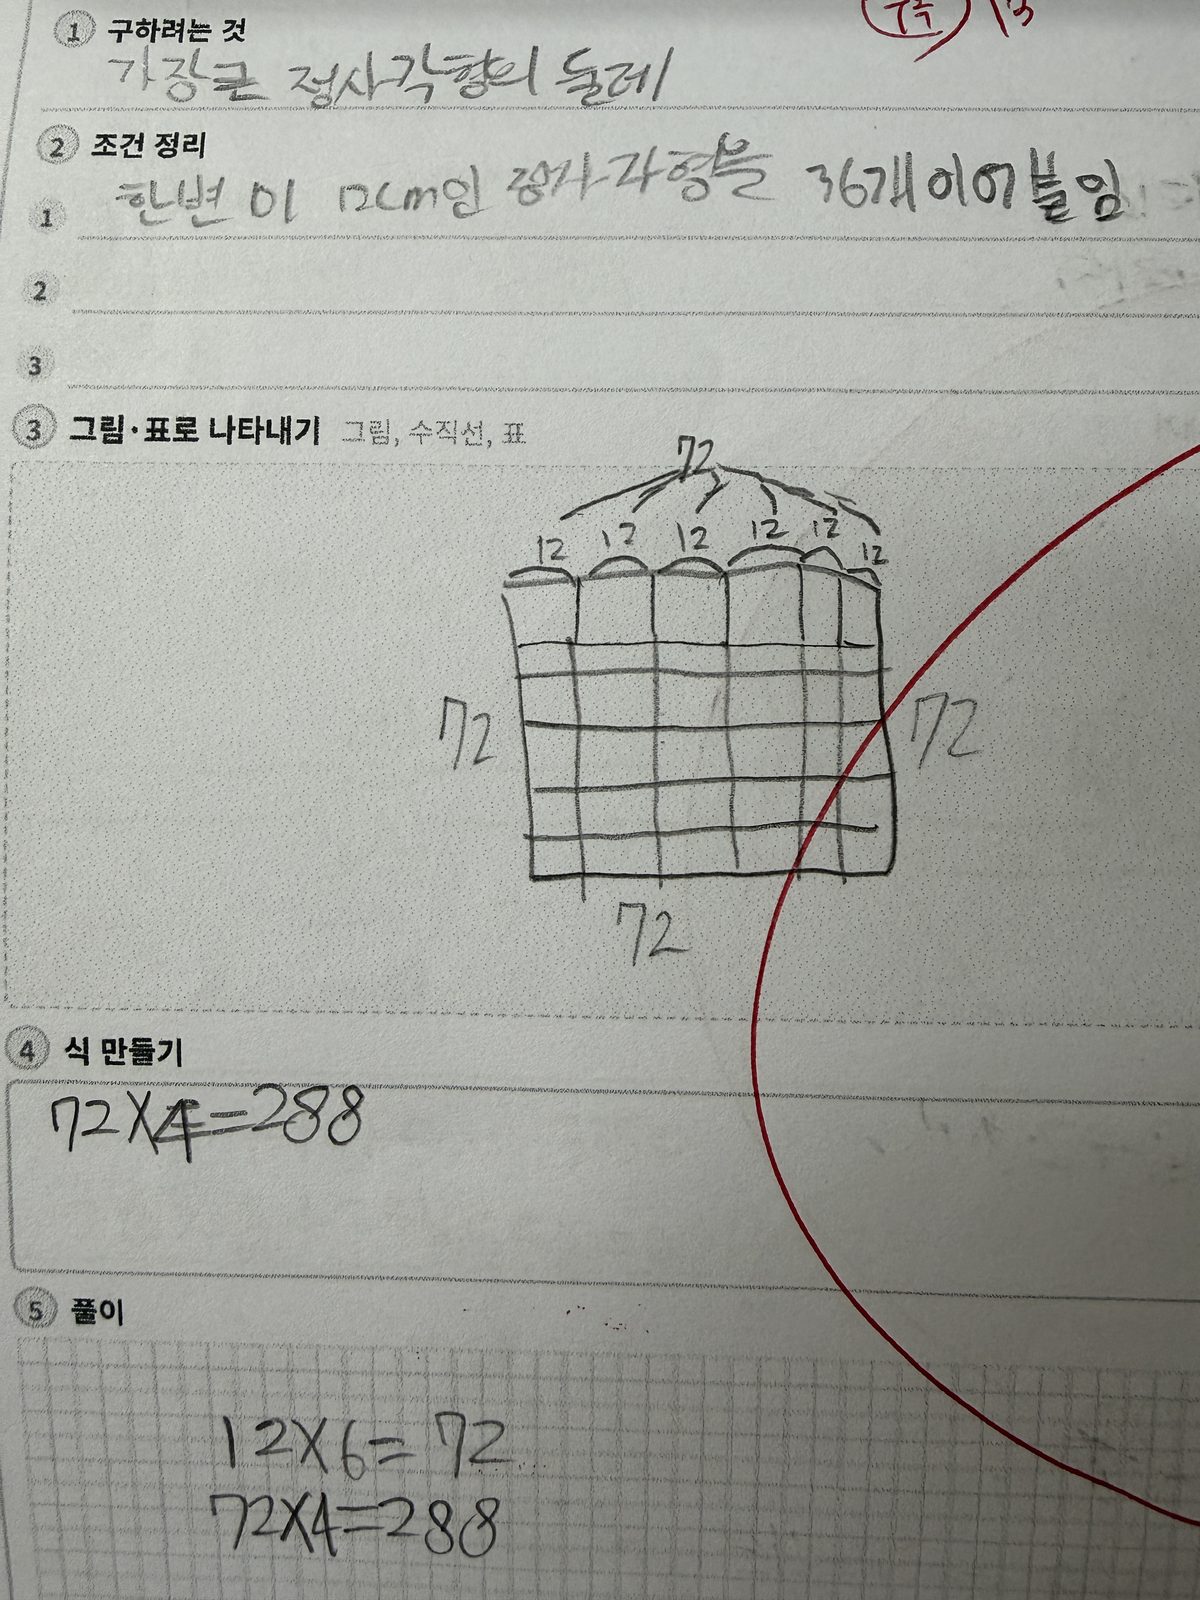 1 구하려는 것
가장큰 정사각형의 둘레
2 조건 정리
1 한변이 12cm인 정사각형을 36개 이어붙임
2
3
3 그림·표로 나타내기 그림, 수직선, 표
72
12 12 12 12 12 12
72 72
72
4 식 만들기
72×4=288
5 풀이
12×6=72
72×4=288